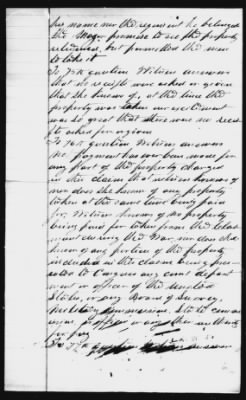 his name nor the regiment he belonged
the Major promise to see the property
returned, but permitted the men
to take it
To 73d question Witness answers
that no receipt was asked or given
that she knows of, at the time the
property was taken, an excitement
was so great that there was no receipt
asked for or given
To 74th question Witness answers
No payment has ever been made for
any part of the property charged
in this claim that witness knows of
nor does she know of any property
taken at the same time being paid
for, Witness knows of no property
being paid for taken from the claim
ant during the War, nor does she
know of any portion of the property
included in this claim being presen
ted to Congress any court depart
ment or officer of the United
States, or any Board of Survey,
Military Commission, State com
officer or any other authority
for pay
To question Witness answers